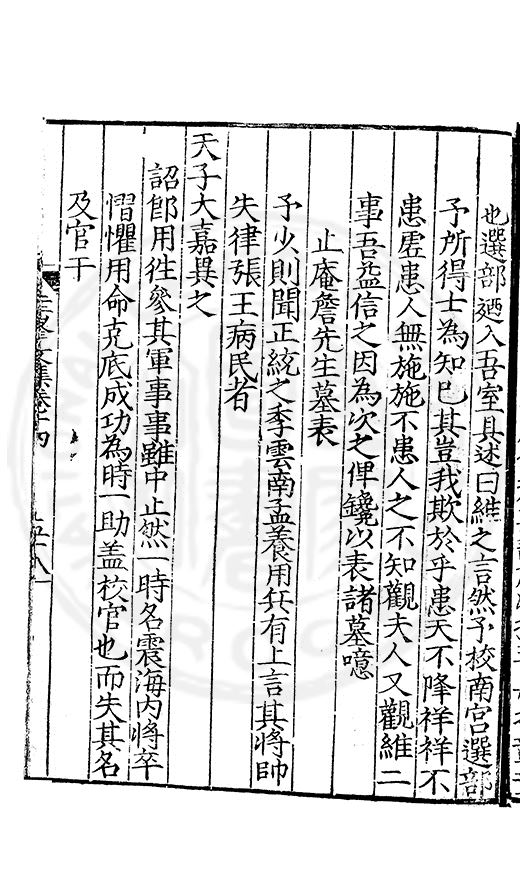 也選部廼入吾室具述曰維之言然予校南宮選部
予所得士為知巳其豈我欺於乎患天不降祥祥不
患虗患人無施施不患人之不知觀夫人又觀維二
事吾益信之因為次之俾鑱以表諸墓噫
止庵詹先生墓表
予少則聞正統之季雲南孟養用兵有上言其將帥
失律張王病民者
天子大嘉異之
詔即用徃參其軍事事雖中止然一時名震海内將卒
慴懼用命克底成功為時一助盖校官也而失其名
及官干
文集卷十四
五十八